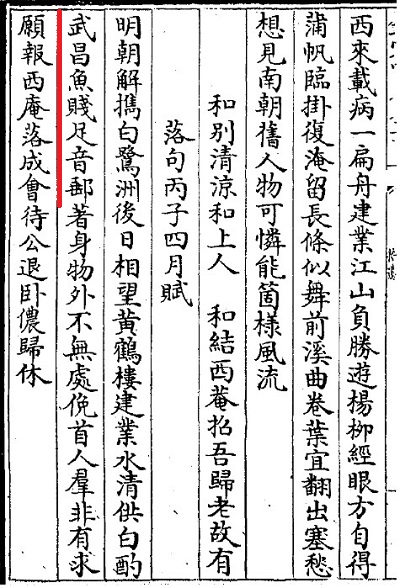 西來載病一扁舟建業江山負勝遊楊柳經眼方自得
蒲帆臨掛復淹留長條似舞前溪曲卷葉宜翻出塞愁
想見南朝舊人物可憐能箇樣風流
和別清涼和上人　和結西菴招吾歸老故有
落句丙子四月賦
明朝解擕白鷺洲後日相望黃鶴樓建業水清供白酌
武昌魚賤足音郵著身物外不無處俛首人羣非有求
願報西庵落成會待公退卧儂歸休